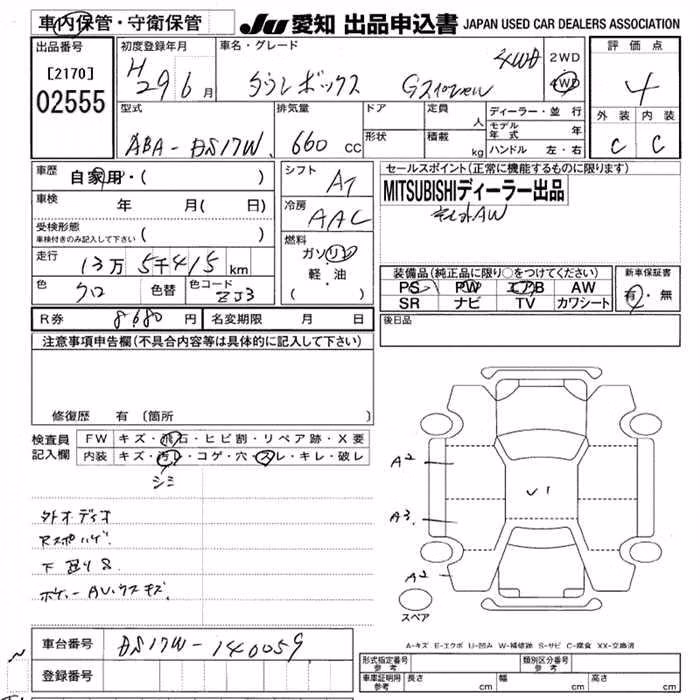 車内保管・守衛保管 JU 愛知 出品申込書 JAPAN USED CAR DEALERS ASSOCIATION
出品番号 初度登録年月 車名・グレード 評価点
[2170] H 29 6月 タウンボックス 4WD 2WD 4WD 4
02555
型式 排気量 ドア 定員 人 ディーラー・並行 外装 内装
ABA-DS17W 660cc 形状 積載 kg モデル年式 年 C C
ハンドル 左・右
車歴 自家用・( ) シフト AT セールスポイント(正常に機能するものに限ります)
車検 年 月( 日) 冷房 AAC MITSUBISHIディーラー出品
AW
受検形態 車検付きのみ記入して下さい ( ) 燃料
走行 13万5千415km ガソリン
軽・油
( )
装備品(純正品に限り○をつけてください) 新車保証書
色 クロ 色替 色コード ZJ3 PS PW エアB AW 有・無
SR ナビ TV カワシート
R券 8,680円 名変期限 月 日 後日品
注意事項申告欄(不具合内容等は具体的に記入して下さい)
修復歴 有 〔箇所 〕
検査員記入欄 FW キズ・飛石・ヒビ割・リペア跡・X要
内装 キズ・汚レ・コゲ・穴・スレ・キレ・破レ
シミ
A2
√1
A3
外オーディオ
下回りS
A2
ボディーAU、ウスキズ
スペア
A-キズ E-エクボ U-凹み W-補修跡 S-サビ C-腐食 XX-交換済
車台番号 DS17W-140059
登録番号
形式指定番号 参考 類別区分番号 参考
車庫証明用 参考 長さ cm 幅 cm 高さ cm